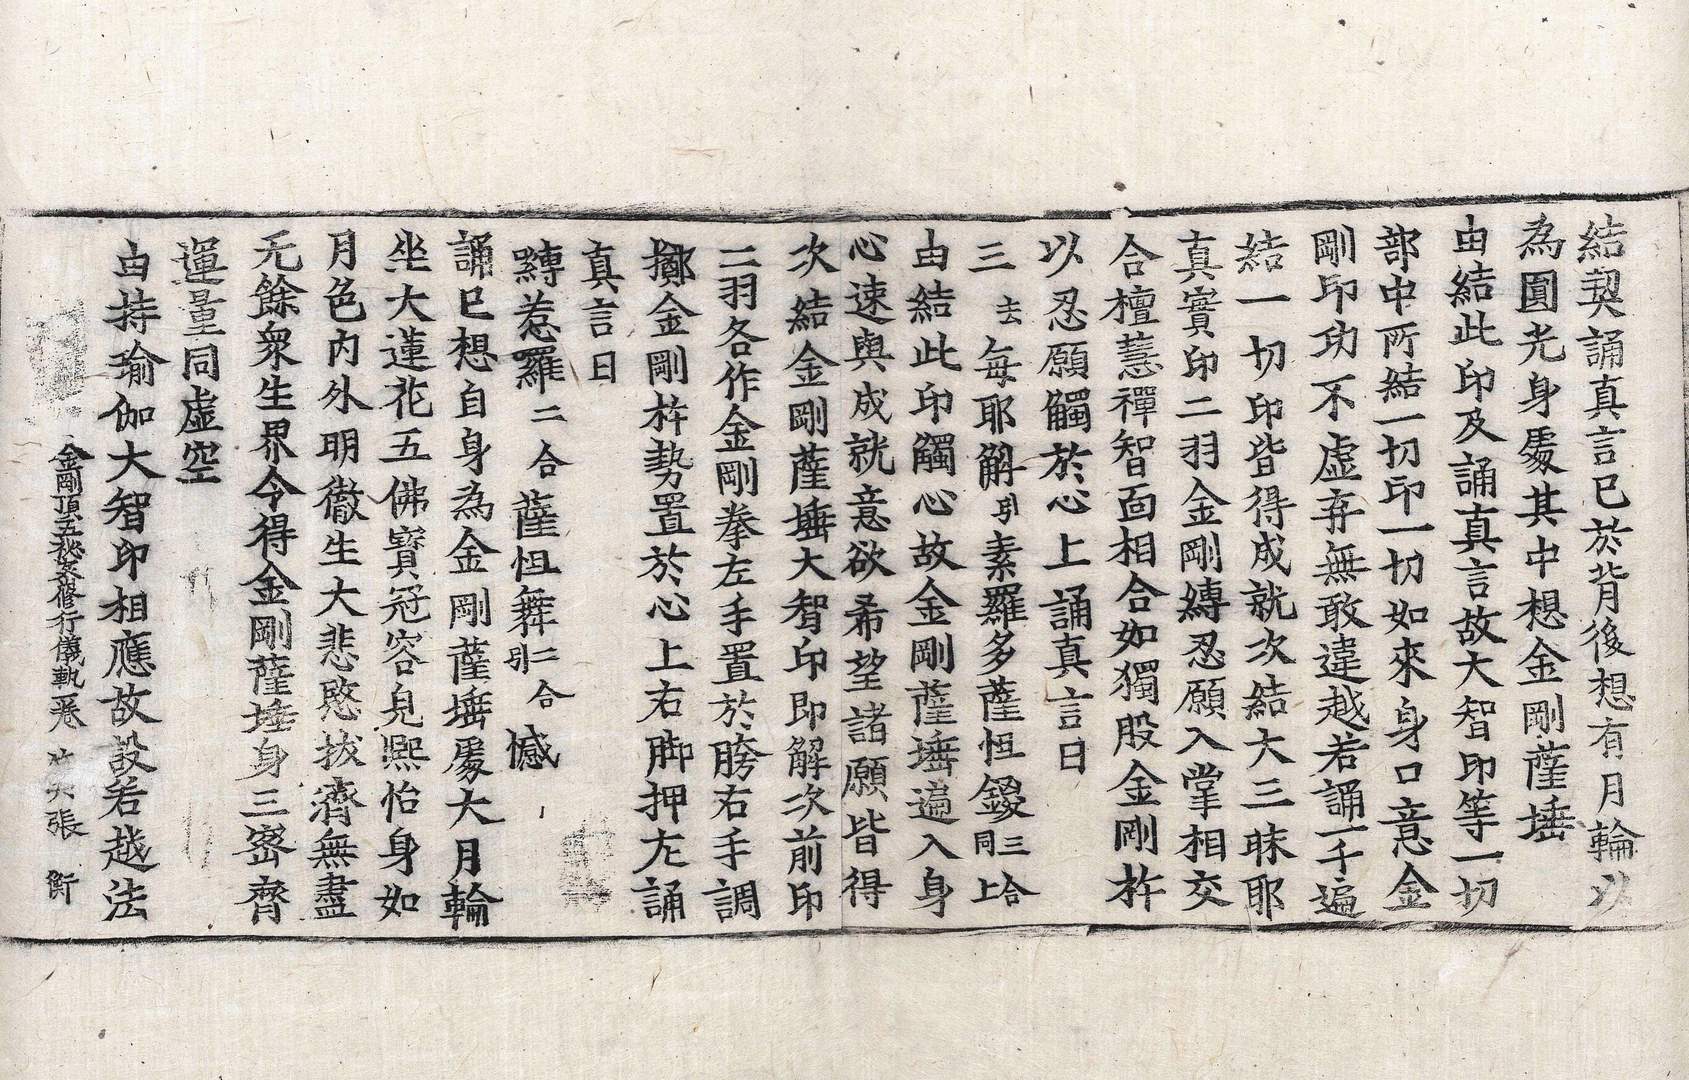 結契誦真言已於背後想有月輪以
為圓光身處其中想金剛薩埵
由結此印及誦真言故大智印等一切
部中所結一切印一切如來身口意金
剛印功不虛弃無敢違越若誦一千遍
結一切印皆得成就次結大三昧耶
真實印二羽金剛縛忍願入掌相交
合檀慧禪智面相合如獨股金剛杵
以忍願觸於心上誦真言曰
三去每耶斛引素羅多薩怛鑁三合同上
由結此印觸心故金剛薩埵遍入身
心速與成就意欲希望諸願皆得
次結金剛薩埵大智印即解次前印
二羽各作金剛拳左手置於胯右手調
擲金剛杵勢置於心上右脚押左誦
真言曰
嚩惹羅二合薩怛舞二合引憾
誦已想自身為金剛薩埵處大月輪
坐大蓮花五佛寶冠容皃熙怡身如
月色內外明徹生大悲愍拔濟無盡
无餘衆生界令得金剛薩埵身三密齊
運量同虛空
由持瑜伽大智印相應故設若越法
金剛頂五秘密修行儀軌一卷 張 衡